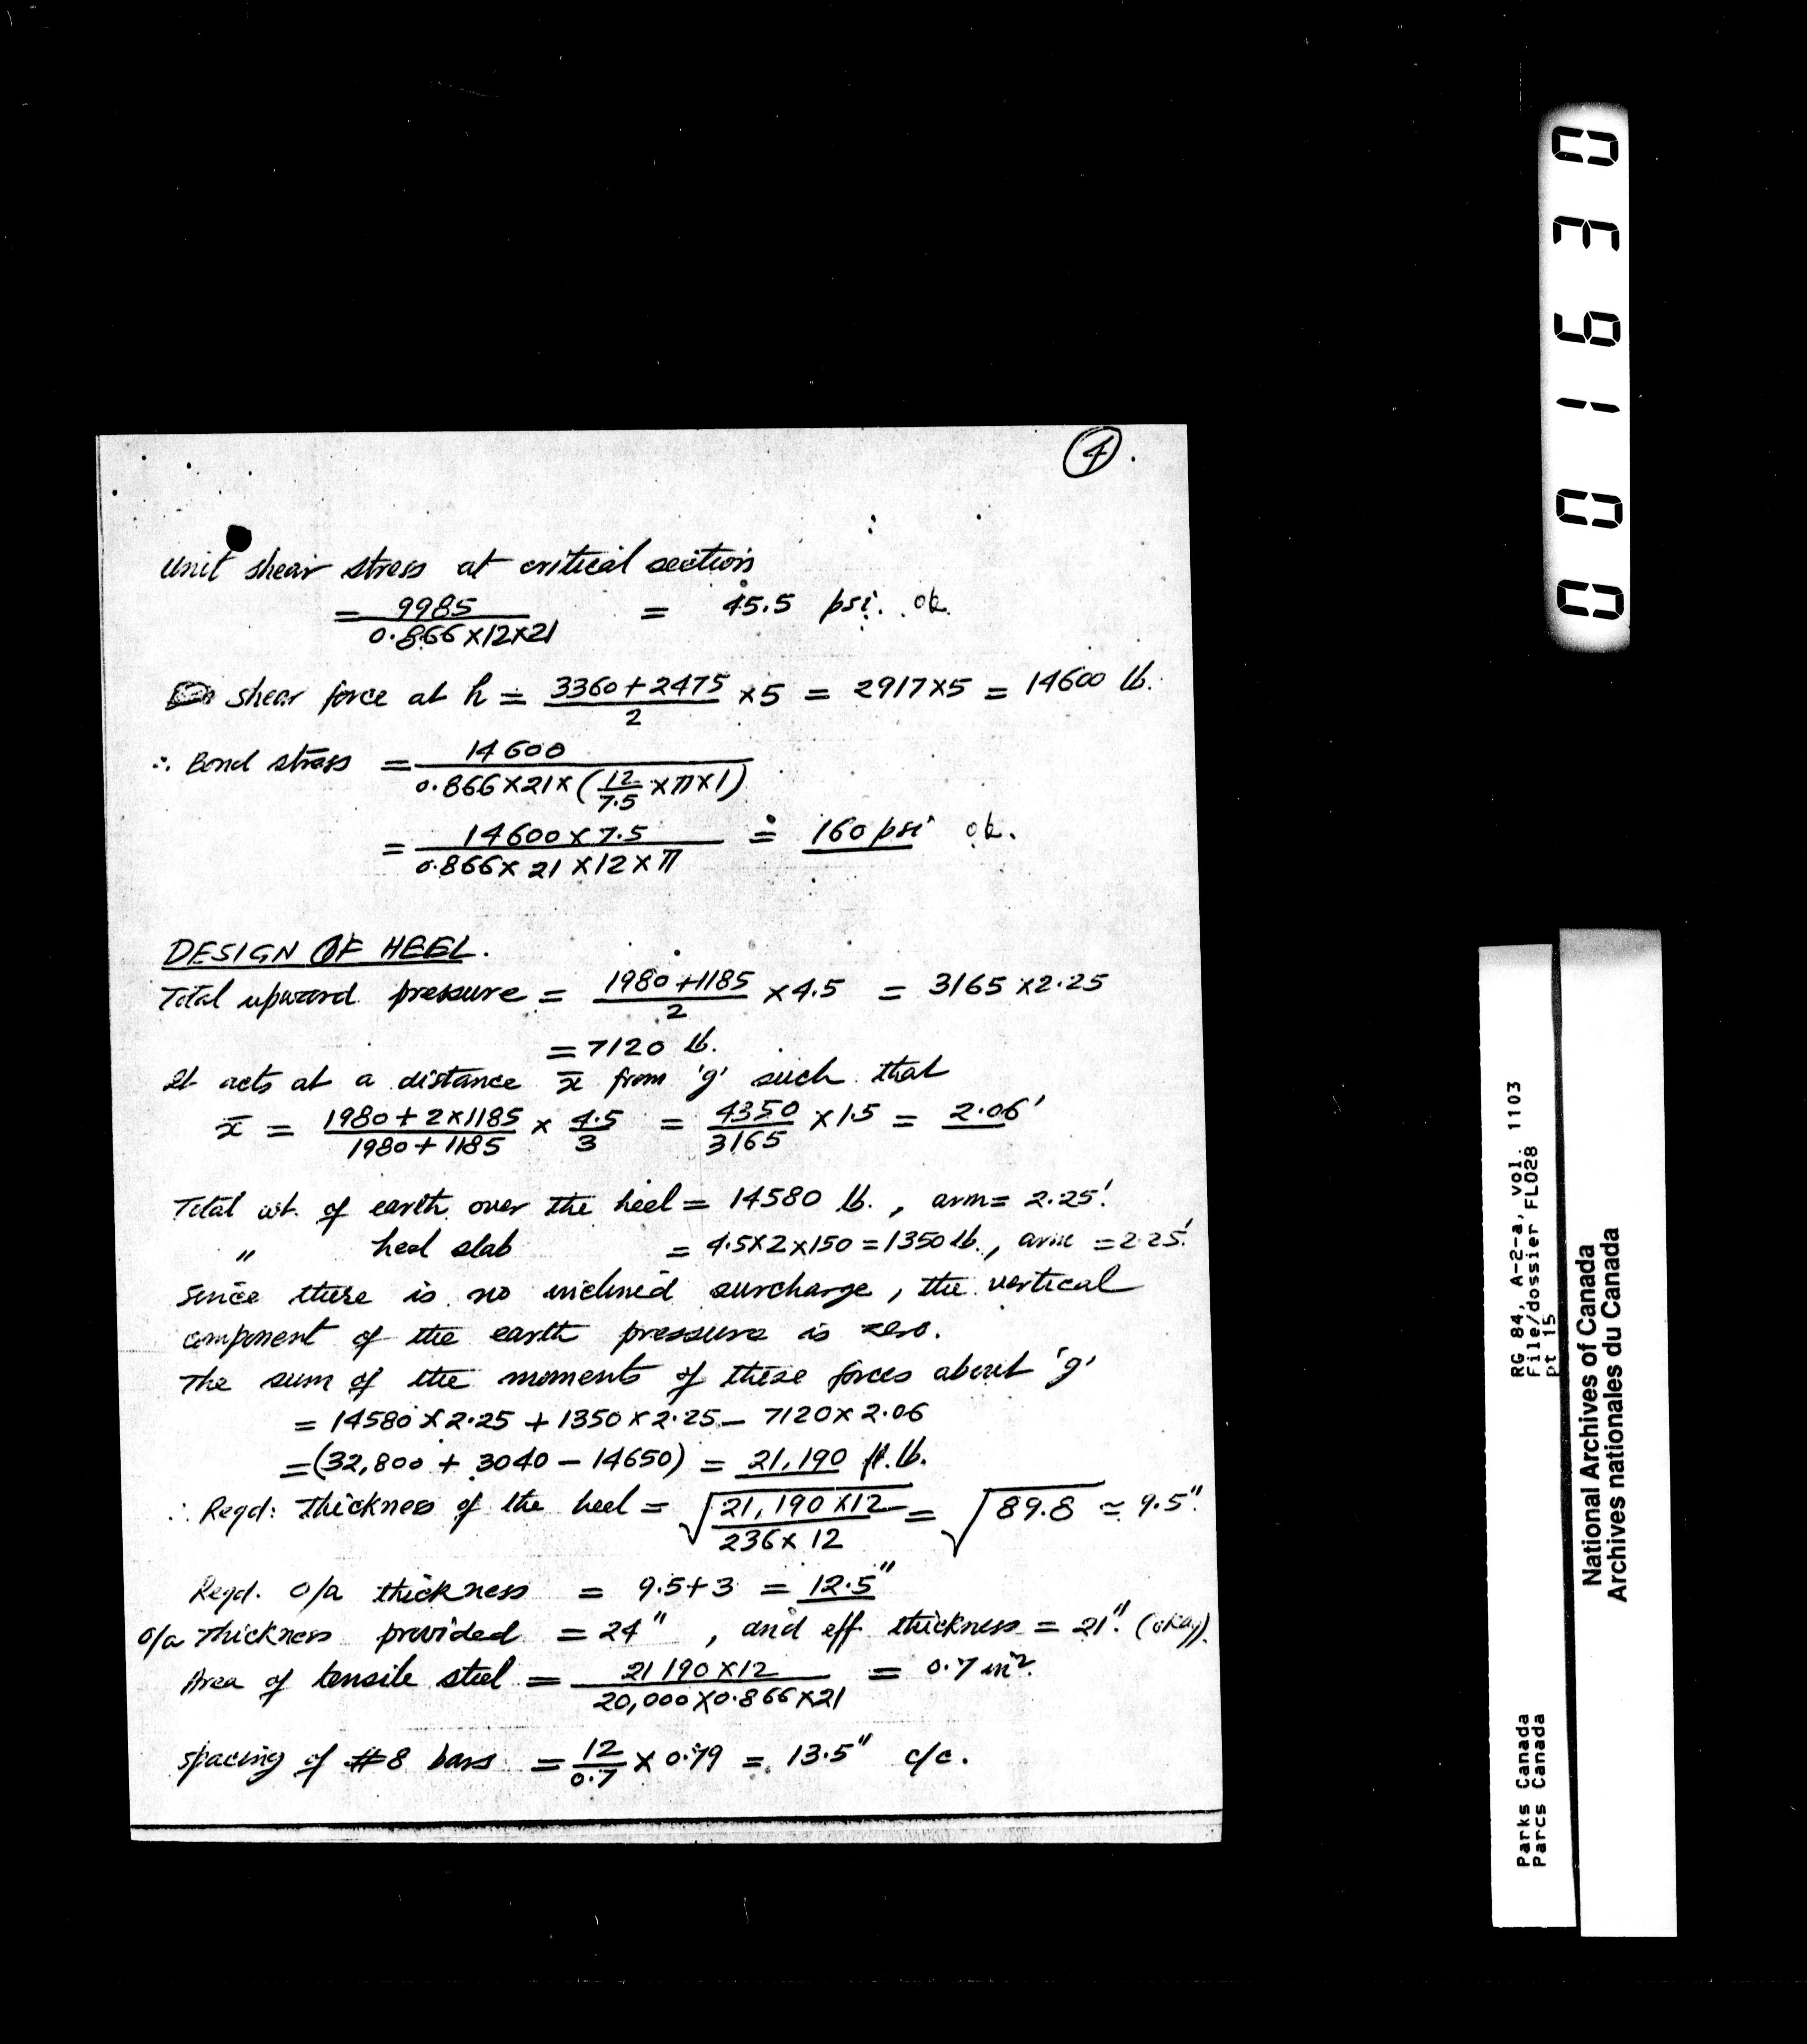 4.
Unit shear stress at critical section
= 9985 / 0.866 x 12 x 21 = 45.5 psi. ok.
shear force at h = 3360 + 2475 / 2 x 5 = 2917 x 5 = 14600 lb.
∴ Bond stress = 14600 / 0.866 x 21 x ( 12 / 7.5 x π x 1 )
= 14600 x 7.5 / 0.866 x 21 x 12 x π = 160 psi ok.
DESIGN OF HEEL.
Total upward pressure = 1980 + 1185 / 2 x 4.5 = 3165 x 2.25
= 7120 lb.
It acts at a distance x̄ from 'g' such that
x̄ = 1980 + 2 x 1185 / 1980 + 1185 x 4.5 / 3 = 4350 / 3165 x 1.5 = 2.06'
Total wt. of earth over the heel = 14580 lb., arm = 2.25'.
" heel slab = 4.5 x 2 x 150 = 1350 lb., arm = 2.25'.
Since there is no inclined surcharge, the vertical
component of the earth pressure is zero.
The sum of the moments of these forces about 'g'
= 14580 x 2.25 + 1350 x 2.25 – 7120 x 2.06
= (32,800 + 3040 – 14650) = 21,190 ft. lb.
∴ Reqd: thickness of the heel = √ 21,190 x 12 / 236 x 12 = √ 89.8 ≃ 9.5".
Reqd. o/a thickness = 9.5 + 3 = 12.5"
o/a thickness provided = 24", and eff. thickness = 21". (okay).
Area of tensile steel = 21190 x 12 / 20,000 x 0.866 x 21 = 0.7 in².
spacing of #8 bars = 12 / 0.7 x 0.79 = 13.5" c/c.
001630
RG 84, A-2-a, vol. 1103
File/dossier FLO28
pt 15
Parks Canada
Parcs Canada
National Archives of Canada
Archives nationales du Canada